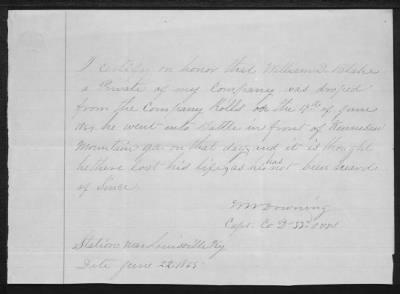 I certify on honor that William D. Blake
a Private of my Company was droped
from the Company Rolls on the 17th of June
as he went into Battle in front of Kennesaw
Mountain Ga. on that day, and it is thought
he there lost his life, as has not been heard
of since.
Downing
Capt. Co D
Station Near Louisville Ky
Date June 22 1865